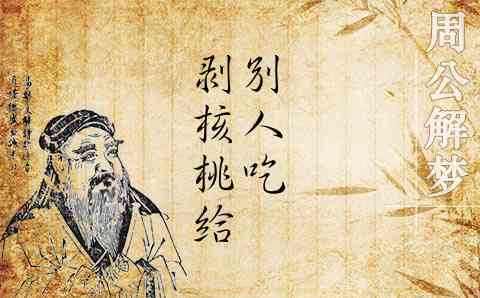 周公解梦
剥核桃给
别人吃